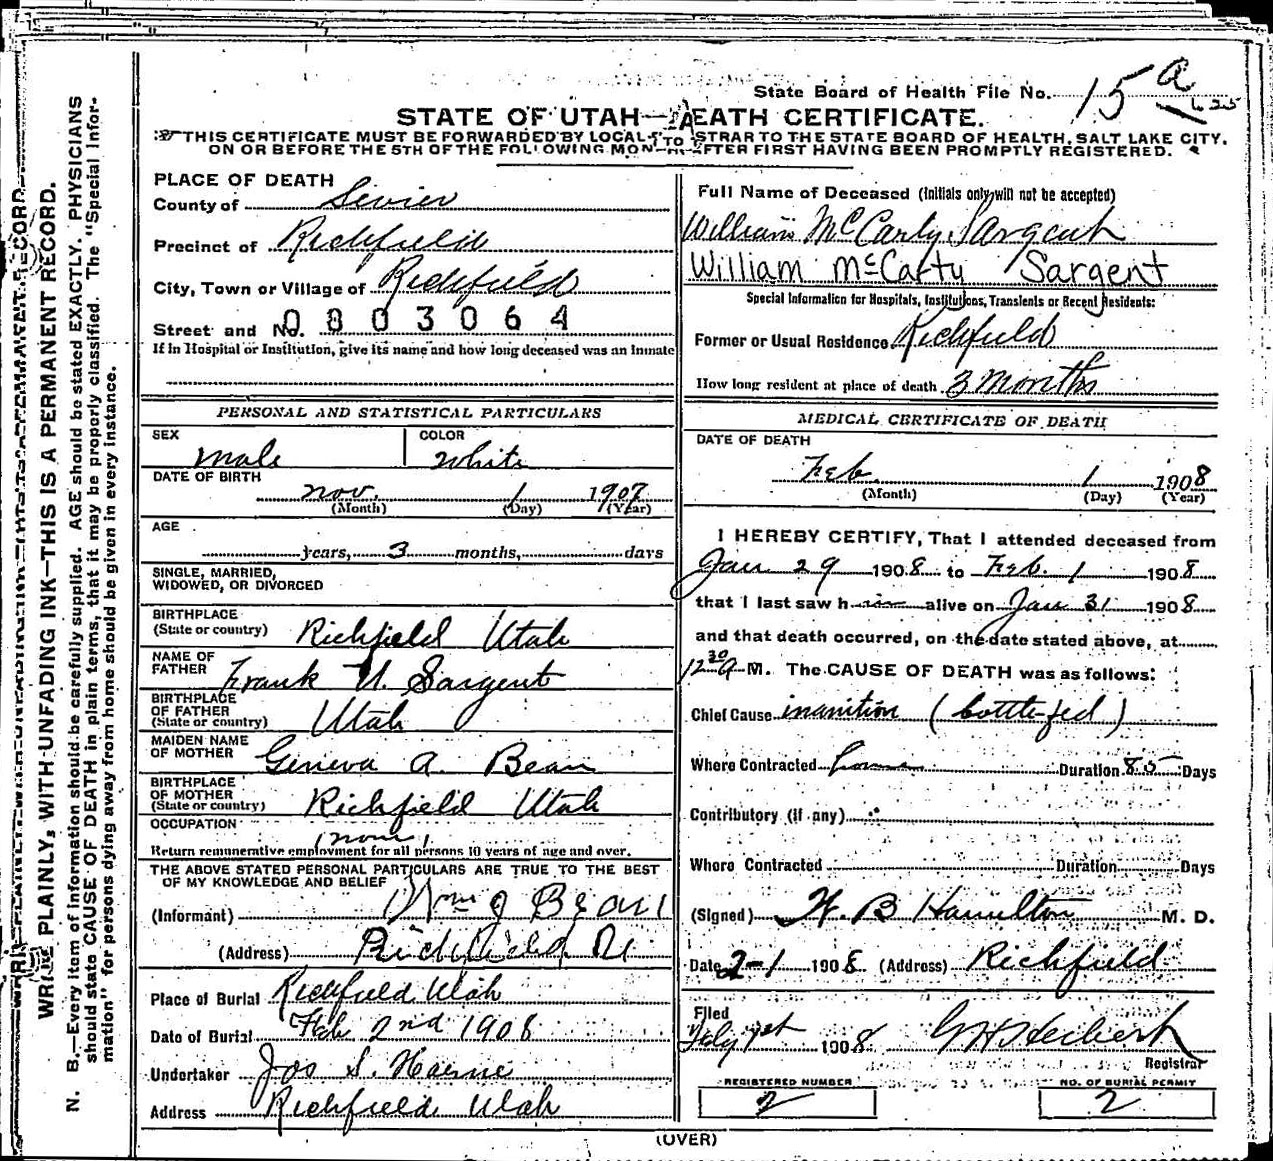 State Board of Health File No. 15 a
625
STATE OF UTAH—DEATH CERTIFICATE.
THIS CERTIFICATE MUST BE FORWARDED BY LOCAL REGISTRAR TO THE STATE BOARD OF HEALTH, SALT LAKE CITY,
ON OR BEFORE THE 5TH OF THE FOLLOWING MONTH AFTER FIRST HAVING BEEN PROMPTLY REGISTERED.
WRITE PLAINLY, WITH UNFADING INK—THIS IS A PERMANENT RECORD.
N. B.—Every item of information should be carefully supplied. AGE should be stated EXACTLY. PHYSICIANS
should state CAUSE OF DEATH in plain terms, that it may be properly classified. The "Special Infor-
mation" for persons dying away from home should be given in every instance.
PLACE OF DEATH
County of Sevier
Precinct of Richfield
City, Town or Village of Richfield
Street and No. 0803064
If in Hospital or Institution, give its name and how long deceased was an inmate
PERSONAL AND STATISTICAL PARTICULARS
SEX Male COLOR White
DATE OF BIRTH
Nov. 1 1907
(Month) (Day) (Year)
AGE
years, 3 months, days
SINGLE, MARRIED,
WIDOWED, OR DIVORCED
BIRTHPLACE
(State or country) Richfield Utah
NAME OF
FATHER Frank U. Sargent
BIRTHPLACE
OF FATHER
(State or country) Utah
MAIDEN NAME
OF MOTHER Geneva A. Bean
BIRTHPLACE
OF MOTHER
(State or country) Richfield Utah
OCCUPATION
(none)
Return remunerative employment for all persons 10 years of age and over.
THE ABOVE STATED PERSONAL PARTICULARS ARE TRUE TO THE BEST
OF MY KNOWLEDGE AND BELIEF
(Informant) Wm J Bean
(Address) Richfield, Ut
Place of Burial Richfield Utah
Date of Burial Feb 2nd 1908
Undertaker Jos S.
Address Richfield Utah
Full Name of Deceased (Initials only will not be accepted)
William McCarty Sargent
William McCarty Sargent
Special Information for Hospitals, Institutions, Transients or Recent Residents:
Former or Usual Residence Richfield
How long resident at place of death 3 Months
MEDICAL CERTIFICATE OF DEATH
DATE OF DEATH
Feb. 1 1908
(Month) (Day) (Year)
I HEREBY CERTIFY, That I attended deceased from
Jan 29 1908 to Feb. 1 1908
that I last saw him alive on Jan 31 1908
and that death occurred, on the date stated above, at
12 30 a M. The CAUSE OF DEATH was as follows:
Chief Cause inanition (bottle fed)
Where Contracted home Duration 85 Days
Contributory (if any)
Where Contracted Duration Days
(Signed) H. B Hamilton M. D.
Date 2-1 1908 (Address) Richfield
Filed
1908
Registrar
REGISTERED NUMBER
2
NO. OF BURIAL PERMIT
2
(OVER)